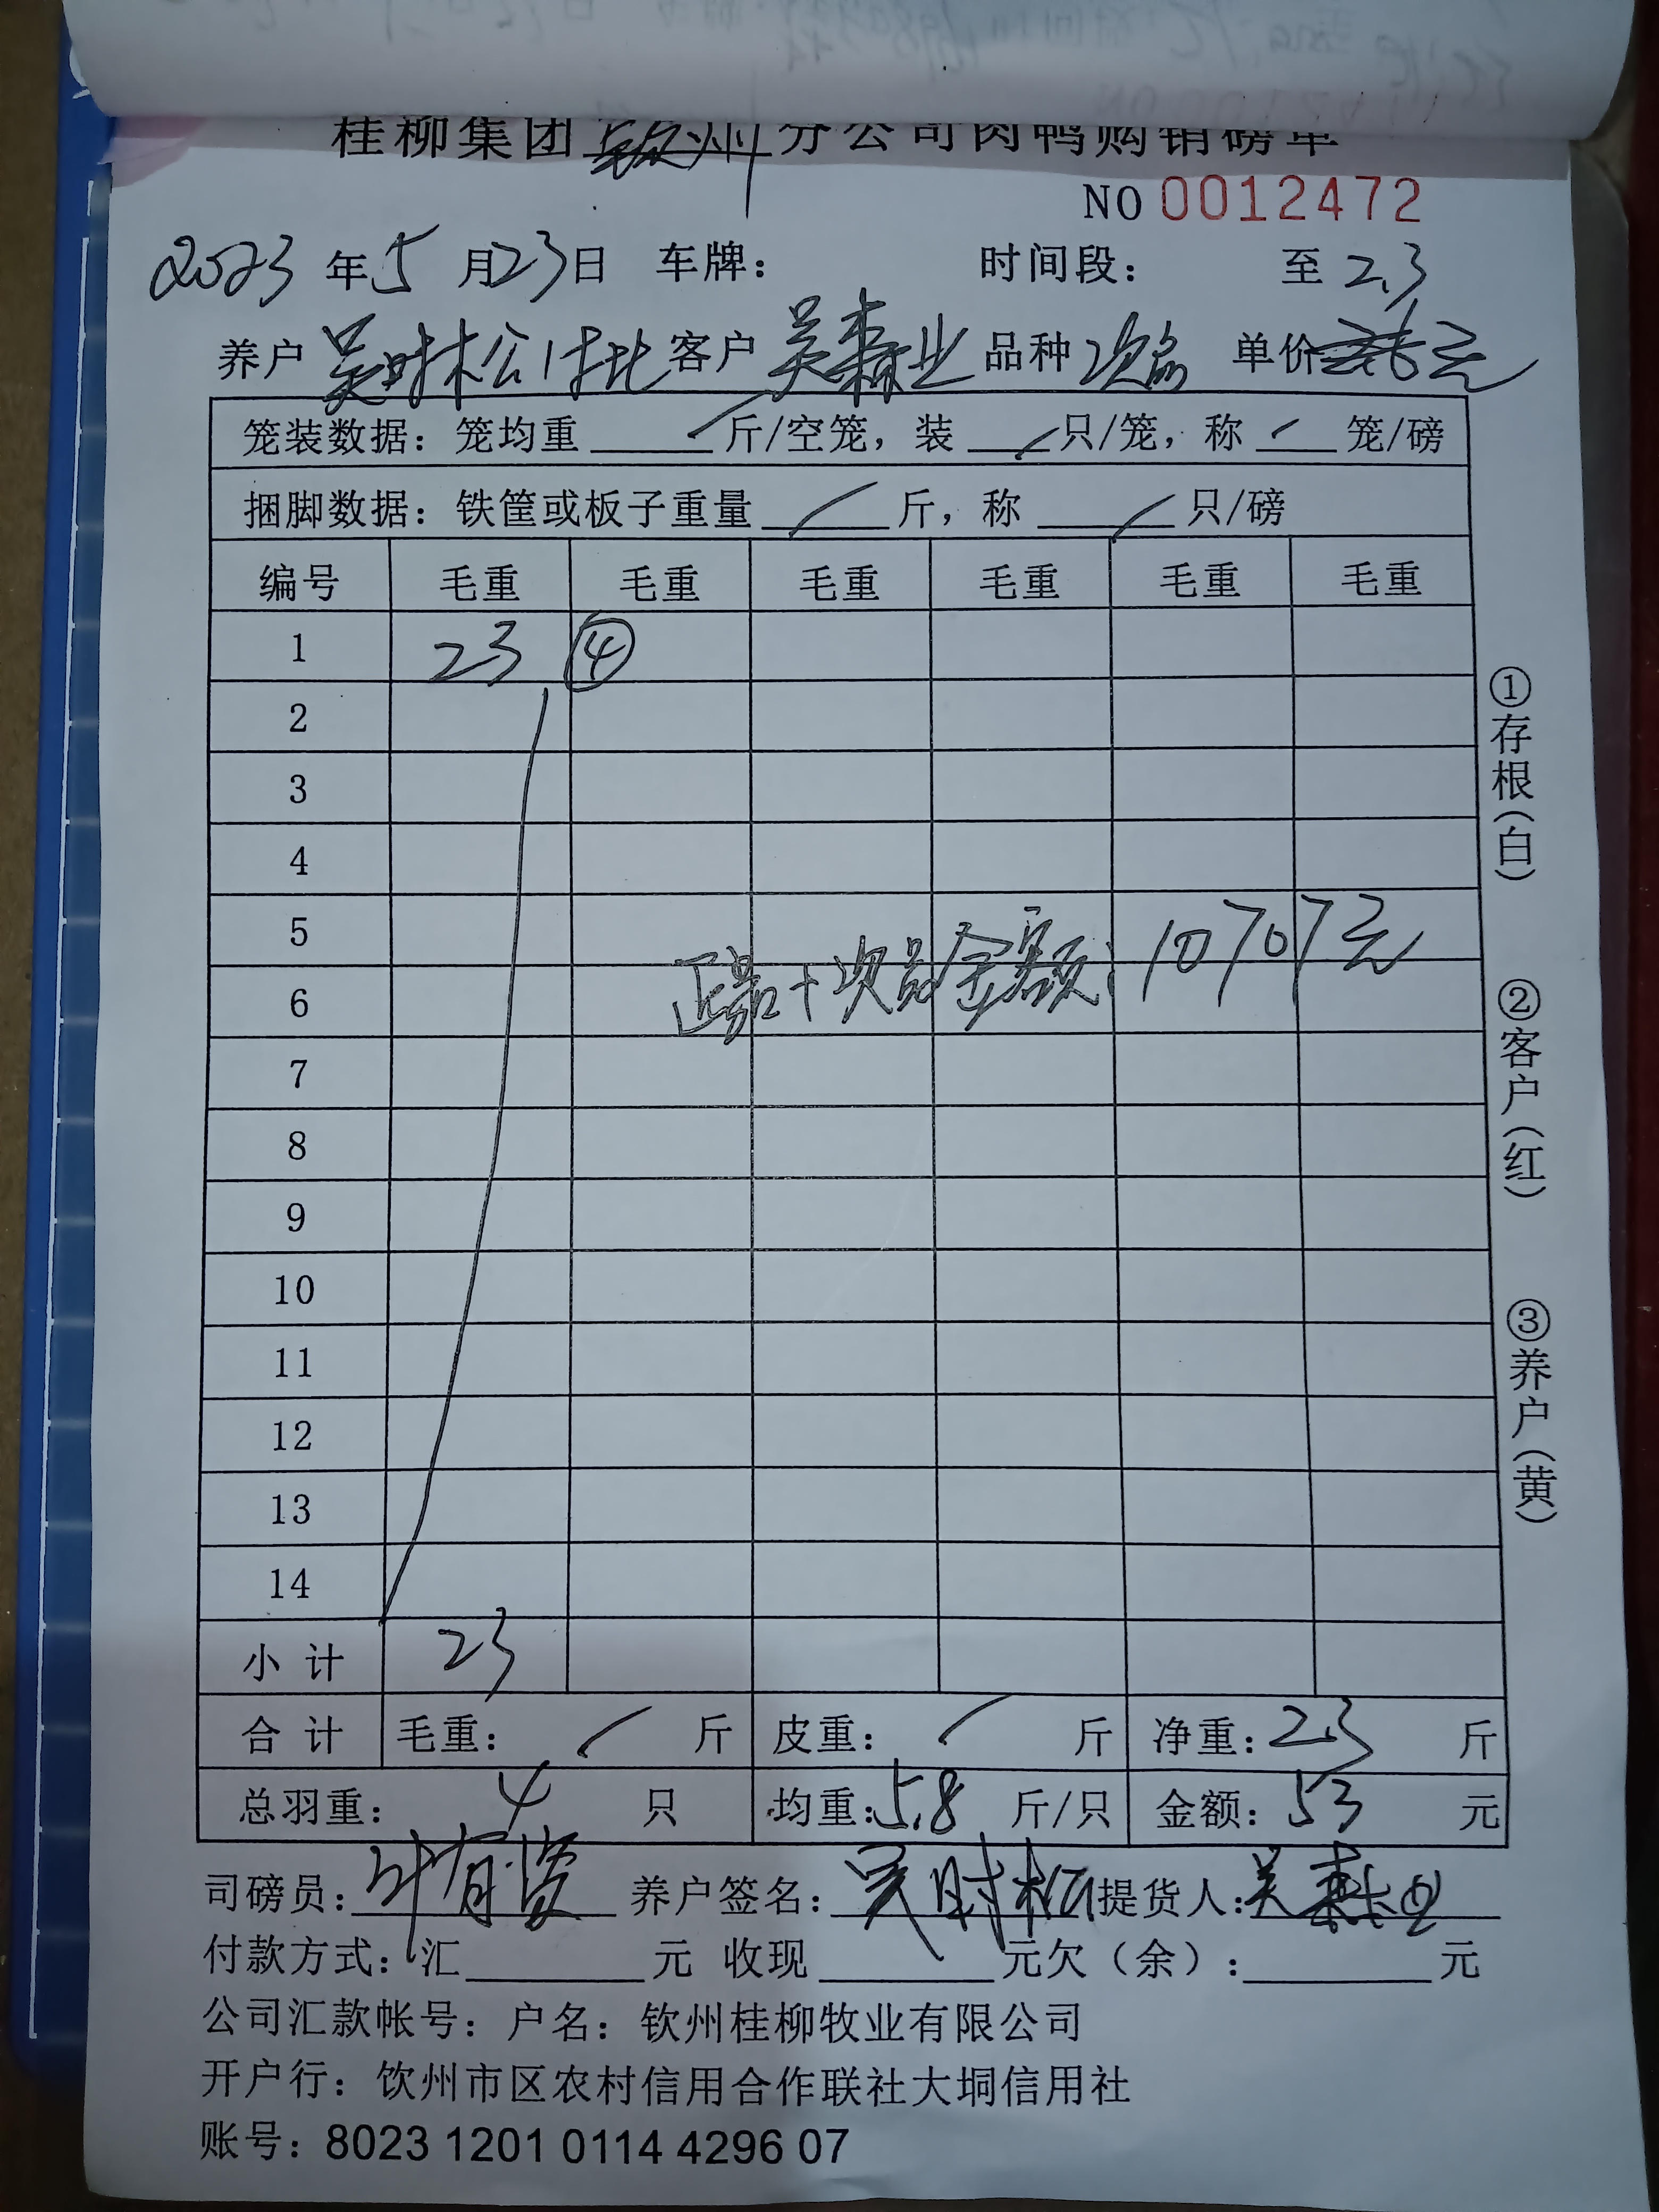 桂柳集团钦州分公司肉鸭购销磅单
NO 0012472
2023年5月23日 车牌: 时间段: 至 2.3
养户 吴时松 1批 客户 吴森业 品种 次品 单价 元
笼装数据: 笼均重 / 斤/空笼, 装 / 只/笼, 称 / 笼/磅
捆脚数据: 铁筐或板子重量 / 斤, 称 / 只/磅
编号 毛重 毛重 毛重 毛重 毛重 毛重
1 23 ④
2
3
4
5
正品+次品金额: 10707元
6
7
8
9
10
11
12
13
14
小计 23
合计 毛重: / 斤 皮重: / 斤 净重: 23 斤
总羽重: 4 只 均重: 5.8 斤/只 金额: 53 元
司磅员: 叶有 养户签名: 吴时松 提货人: 吴森业
付款方式: 汇 元 收现 元欠(余): 元
公司汇款帐号: 户名: 钦州桂柳牧业有限公司
开户行: 钦州市区农村信用合作联社大垌信用社
账号: 8023 1201 0114 4296 07
①存根(白)
②客户(红)
③养户(黄)